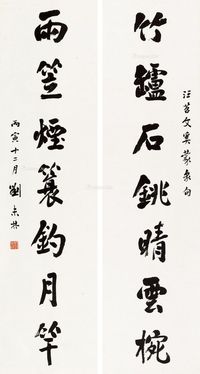 竹罏石銚晴雲椀
汪苕文奚蒙泉句
雨笠煙簑釣月竿
丙寅十二月 劉未林